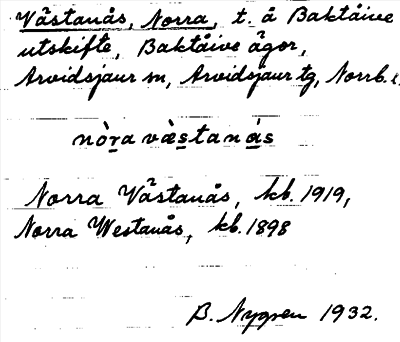 Västanås, Norra, t. å Baktåive
utskifte, Baktåive ägor,
Arvidsjaur sn, Arvidsjaur tg, Norrb. l.
nòra væ̀stanás
Norra Västanås, kb. 1919,
Norra Westanås, kb. 1898
B. Nygren 1932.